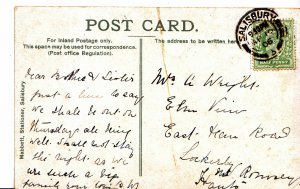 POST CARD.
For Inland Postage only.
This space may be used for correspondence.
(Post Office Regulation).
The address to be written here
SALISBURY
HALF PENNY
Maskett, Stationer, Salisbury.
Dear Brother & Sister
Just a line to say
we shall be out on
Thursday all being
well. Shall not stay
the night as we
are such a big
family
Mrs A Wright
Elm View
East Main Road
Lockerly
Nr Romsey
Hants